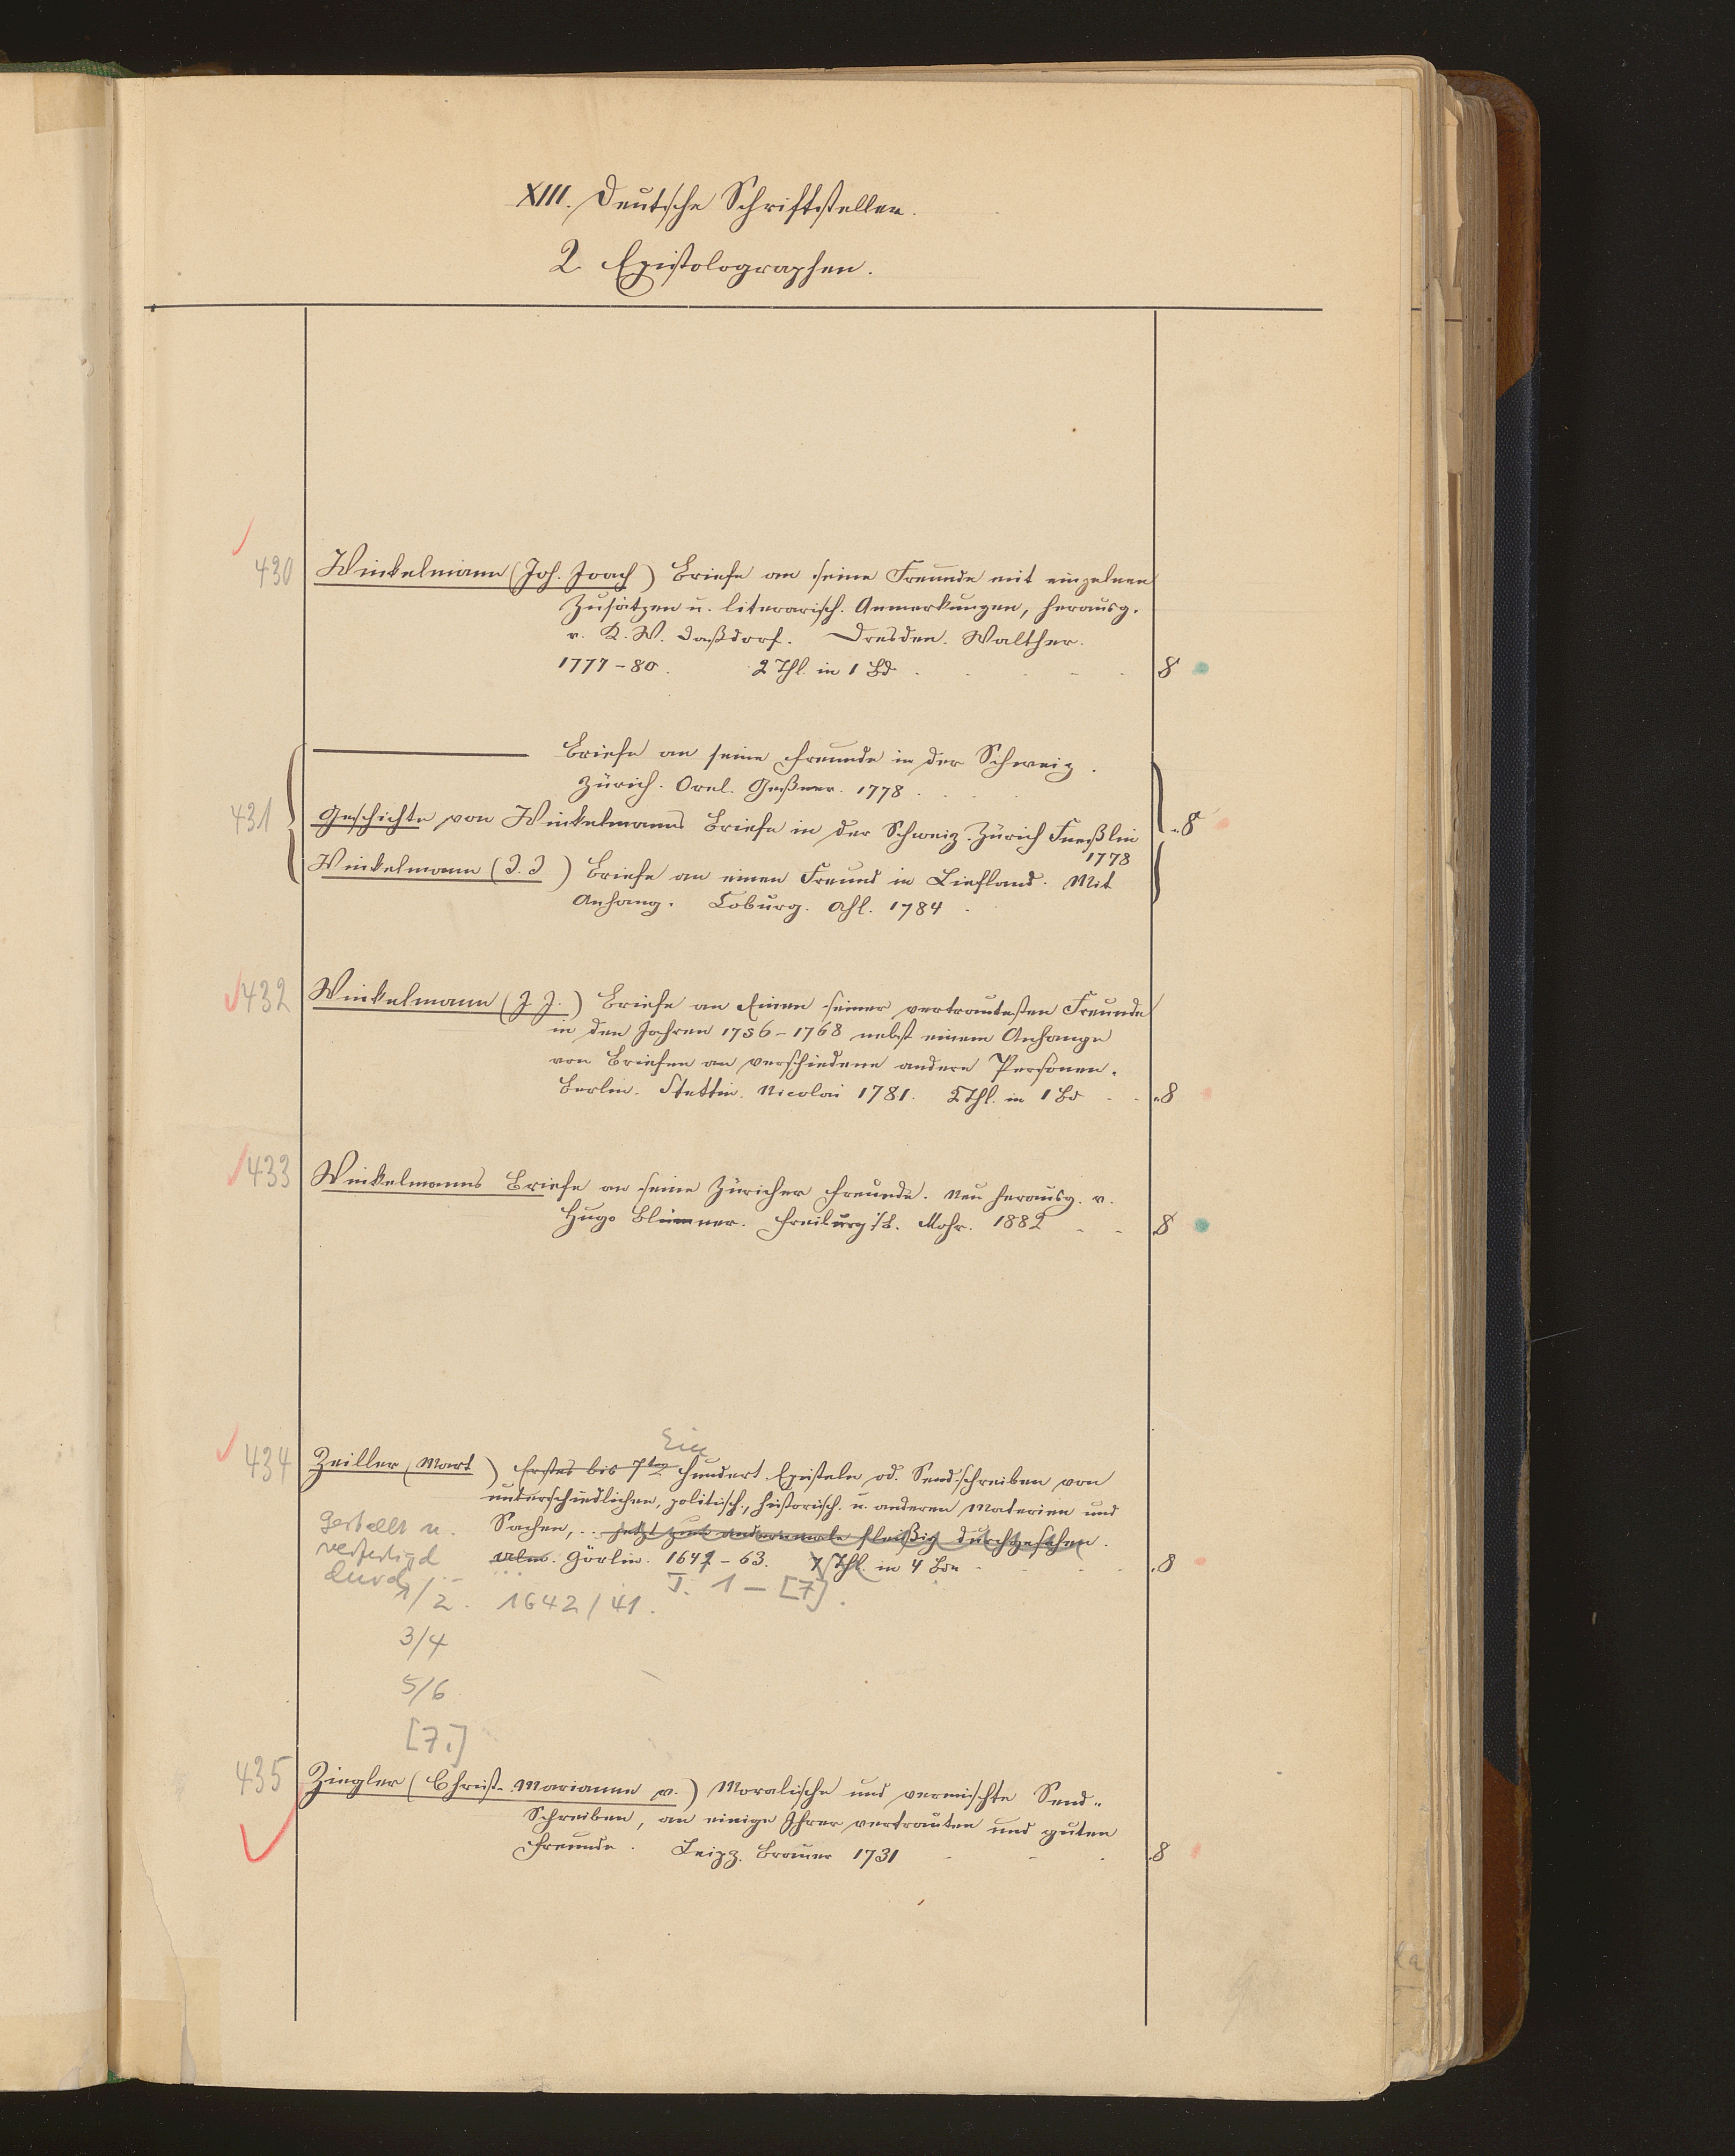 XIII. Deutsche Schriftsteller.
2. Epistolographen.
430 Winkelmann (Joh. Joach) Briefe an seine Freunde mit einzelnen
Zusätzen u. literarisch. Anmerkungen, herausg.
v. K. W. Daßdorf. Dresden. Walther.
1777-80. 2 Thl. in 1 Bd. 8
Briefe an seine Freunde in der Schweiz.
Zürich. Orel. Geßner. 1778.
431 Geschichte von Winkelmanns Briefe in der Schweiz. Zürich Fueßlin 8
1778
Winkelmann (J. J) Briefe an einen Freund in Liefland. Mit
Anhang. Coburg. Ahl. 1784
432 Winkelmann (J. J.) Briefe an Einen seiner vertrautesten Freunde
in den Jahren 1756-1768 nebst einem Anhange
von Briefen an verschiedene andere Personen.
Berlin. Stettin. Nicolai 1781. 2 Thl. in 1 Bd 8
433 Winkelmanns Briefe an seine Züricher Freunde. Neu herausg. v.
Hugo Blümner. Freiburg i/B. Mohr. 1882 8
Ein
434 Zeiller (Mart ) Erstes bis 7tes hundert Episteln od. Sendschreiben von
unterschiedlichen, politisch., historisch. u. anderen Materien und
gestellt u. Sachen, .. jetzt zum andernmale fleißig durchgesehen.
verfertigd Ulm. Görlin. 1647-63. 7 Thl. in 4 Bdn 8
durch ... T. 1-[7].
1/2. 1642/41.
3/4
5/6
[7.]
435 Ziegler (Christ. Marianne v.) Moralische und vermischte Send-
Schreiben, an einige Ihrer vertrauten und guten
Freunde. Leipz. Brauer 1731 8